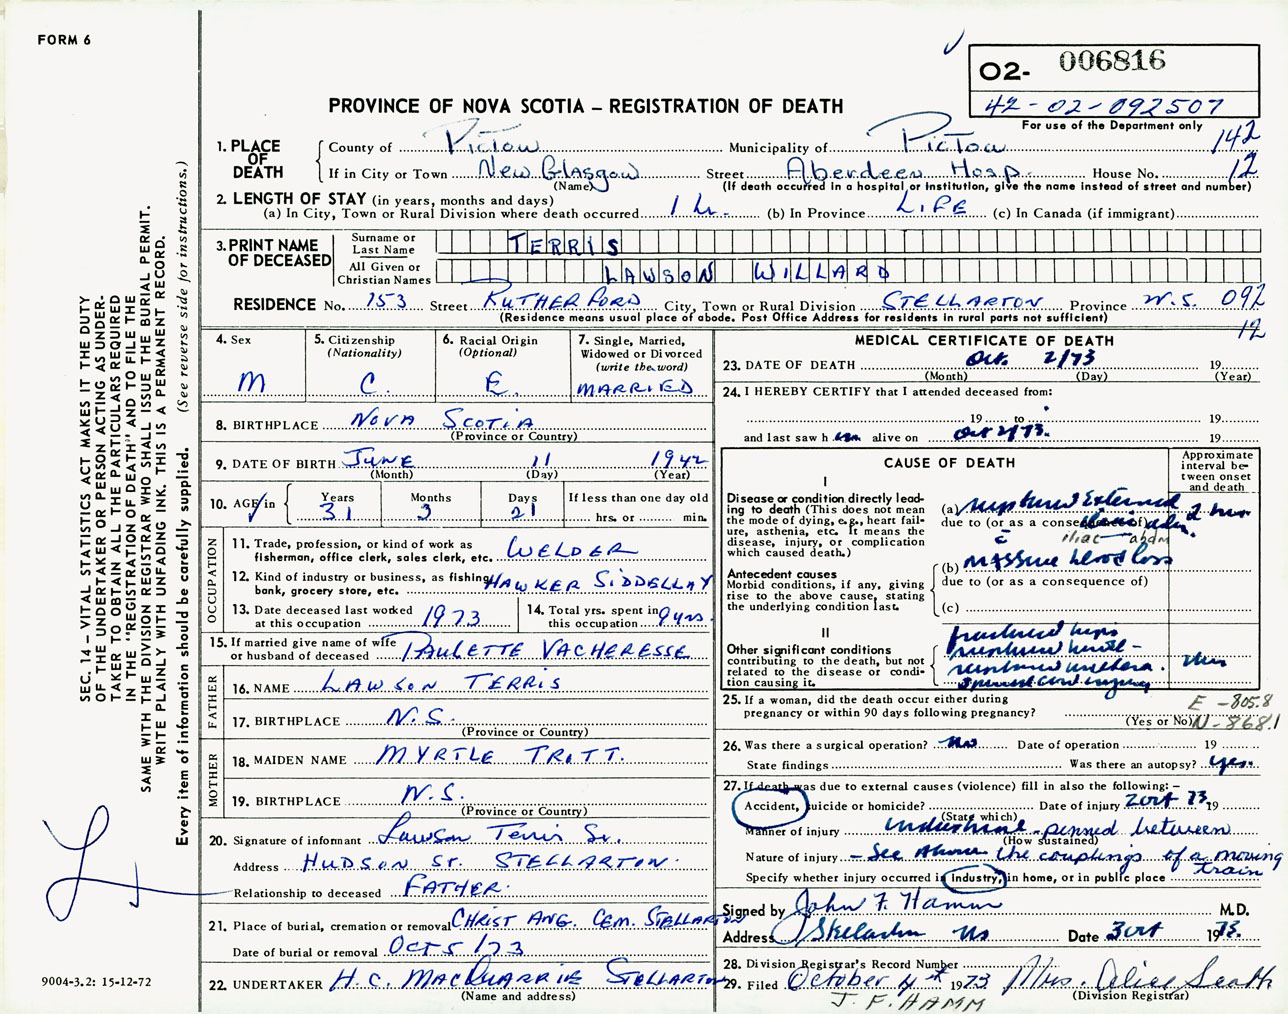 FORM 6
O2- 006816
42-02-092507
For use of the Department only
PROVINCE OF NOVA SCOTIA – REGISTRATION OF DEATH
142
1. PLACE OF DEATH
County of Pictou Municipality of Pictou
If in City or Town New Glasgow Street Aberdeen Hosp. House No. 12
(Name) (If death occurred in a hospital or institution, give the name instead of street and number)
2. LENGTH OF STAY (in years, months and days)
(a) In City, Town or Rural Division where death occurred 1 h. (b) In Province LIFE (c) In Canada (if immigrant)
3. PRINT NAME OF DECEASED
Surname or Last Name TERRIS
All Given or Christian Names LAWSON WILLARD
RESIDENCE No. 153 Street RUTHERFORD City, Town or Rural Division STELLARTON Province N.S. 092
(Residence means usual place of abode. Post Office Address for residents in rural parts not sufficient)
12
4. Sex
M
5. Citizenship (Nationality)
C.
6. Racial Origin (Optional)
E.
7. Single, Married, Widowed or Divorced (write the word)
MARRIED
8. BIRTHPLACE NOVA SCOTIA
(Province or Country)
9. DATE OF BIRTH JUNE 11 1942
(Month) (Day) (Year)
10. AGE in Years Months Days If less than one day old
31 3 21 hrs. or min.
OCCUPATION
11. Trade, profession, or kind of work as fisherman, office clerk, sales clerk, etc. WELDER
12. Kind of industry or business, as fishing, bank, grocery store, etc. HAWKER SIDDELLAY
13. Date deceased last worked at this occupation 1973
14. Total yrs. spent in this occupation 9 yrs.
15. If married give name of wife or husband of deceased PAULETTE VACHERESSE
FATHER
16. NAME LAWSON TERRIS
17. BIRTHPLACE N.S.
(Province or Country)
MOTHER
18. MAIDEN NAME MYRTLE TRITT.
19. BIRTHPLACE N.S.
(Province or Country)
20. Signature of informant Lawson Terris Sr.
Address HUDSON ST. STELLARTON.
Relationship to deceased FATHER.
21. Place of burial, cremation or removal CHRIST ANG. CEM. STELLARTON
Date of burial or removal OCT 5/73
22. UNDERTAKER H.C. MACQUARRIE STELLARTON
(Name and address)
MEDICAL CERTIFICATE OF DEATH
23. DATE OF DEATH Oct. 2/73 19
(Month) (Day) (Year)
24. I HEREBY CERTIFY that I attended deceased from:
19 to 19
and last saw h im alive on Oct 2/73. 19
CAUSE OF DEATH
Approximate interval between onset and death
I
Disease or condition directly leading to death (This does not mean the mode of dying, e.g., heart failure, asthenia, etc. It means the disease, injury, or complication which caused death.)
(a) ruptured External
due to (or as a consequence of)
iliac abdm
Antecedent causes
Morbid conditions, if any, giving rise to the above cause, stating the underlying condition last.
(b) massive blood loss
due to (or as a consequence of)
(c)
II
Other significant conditions contributing to the death, but not related to the disease or condition causing it.
fractured hips
ruptured
ruptured urethera.
spinal cord injury
25. If a woman, did the death occur either during pregnancy or within 90 days following pregnancy?
(Yes or No)
E -805.8
N-868.1
26. Was there a surgical operation? no Date of operation 19
State findings Was there an autopsy? yes.
27. If death was due to external causes (violence) fill in also the following:–
Accident, suicide or homicide? Date of injury 2 Oct 73 19
(State which)
Manner of injury industrial - pinned between
(How sustained)
Nature of injury - See Above the couplings of a moving train
Specify whether injury occurred in industry, in home, or in public place
Signed by John F. Hamm M.D.
Address Stellarton NS Date 3 Oct 1973.
28. Division Registrar's Record Number
29. Filed October 4th 1973 Mrs. Alice
(Division Registrar)
J. F. HAMM
SEC. 14 – VITAL STATISTICS ACT MAKES IT THE DUTY
OF THE UNDERTAKER OR PERSON ACTING AS UNDER-
TAKER TO OBTAIN ALL THE PARTICULARS REQUIRED
IN THE "REGISTRATION OF DEATH" AND TO FILE THE
SAME WITH THE DIVISION REGISTRAR WHO SHALL ISSUE THE BURIAL PERMIT.
WRITE PLAINLY WITH UNFADING INK. THIS IS A PERMANENT RECORD.
Every item of information should be carefully supplied. (See reverse side for instructions.)
9004-3.2: 15-12-72